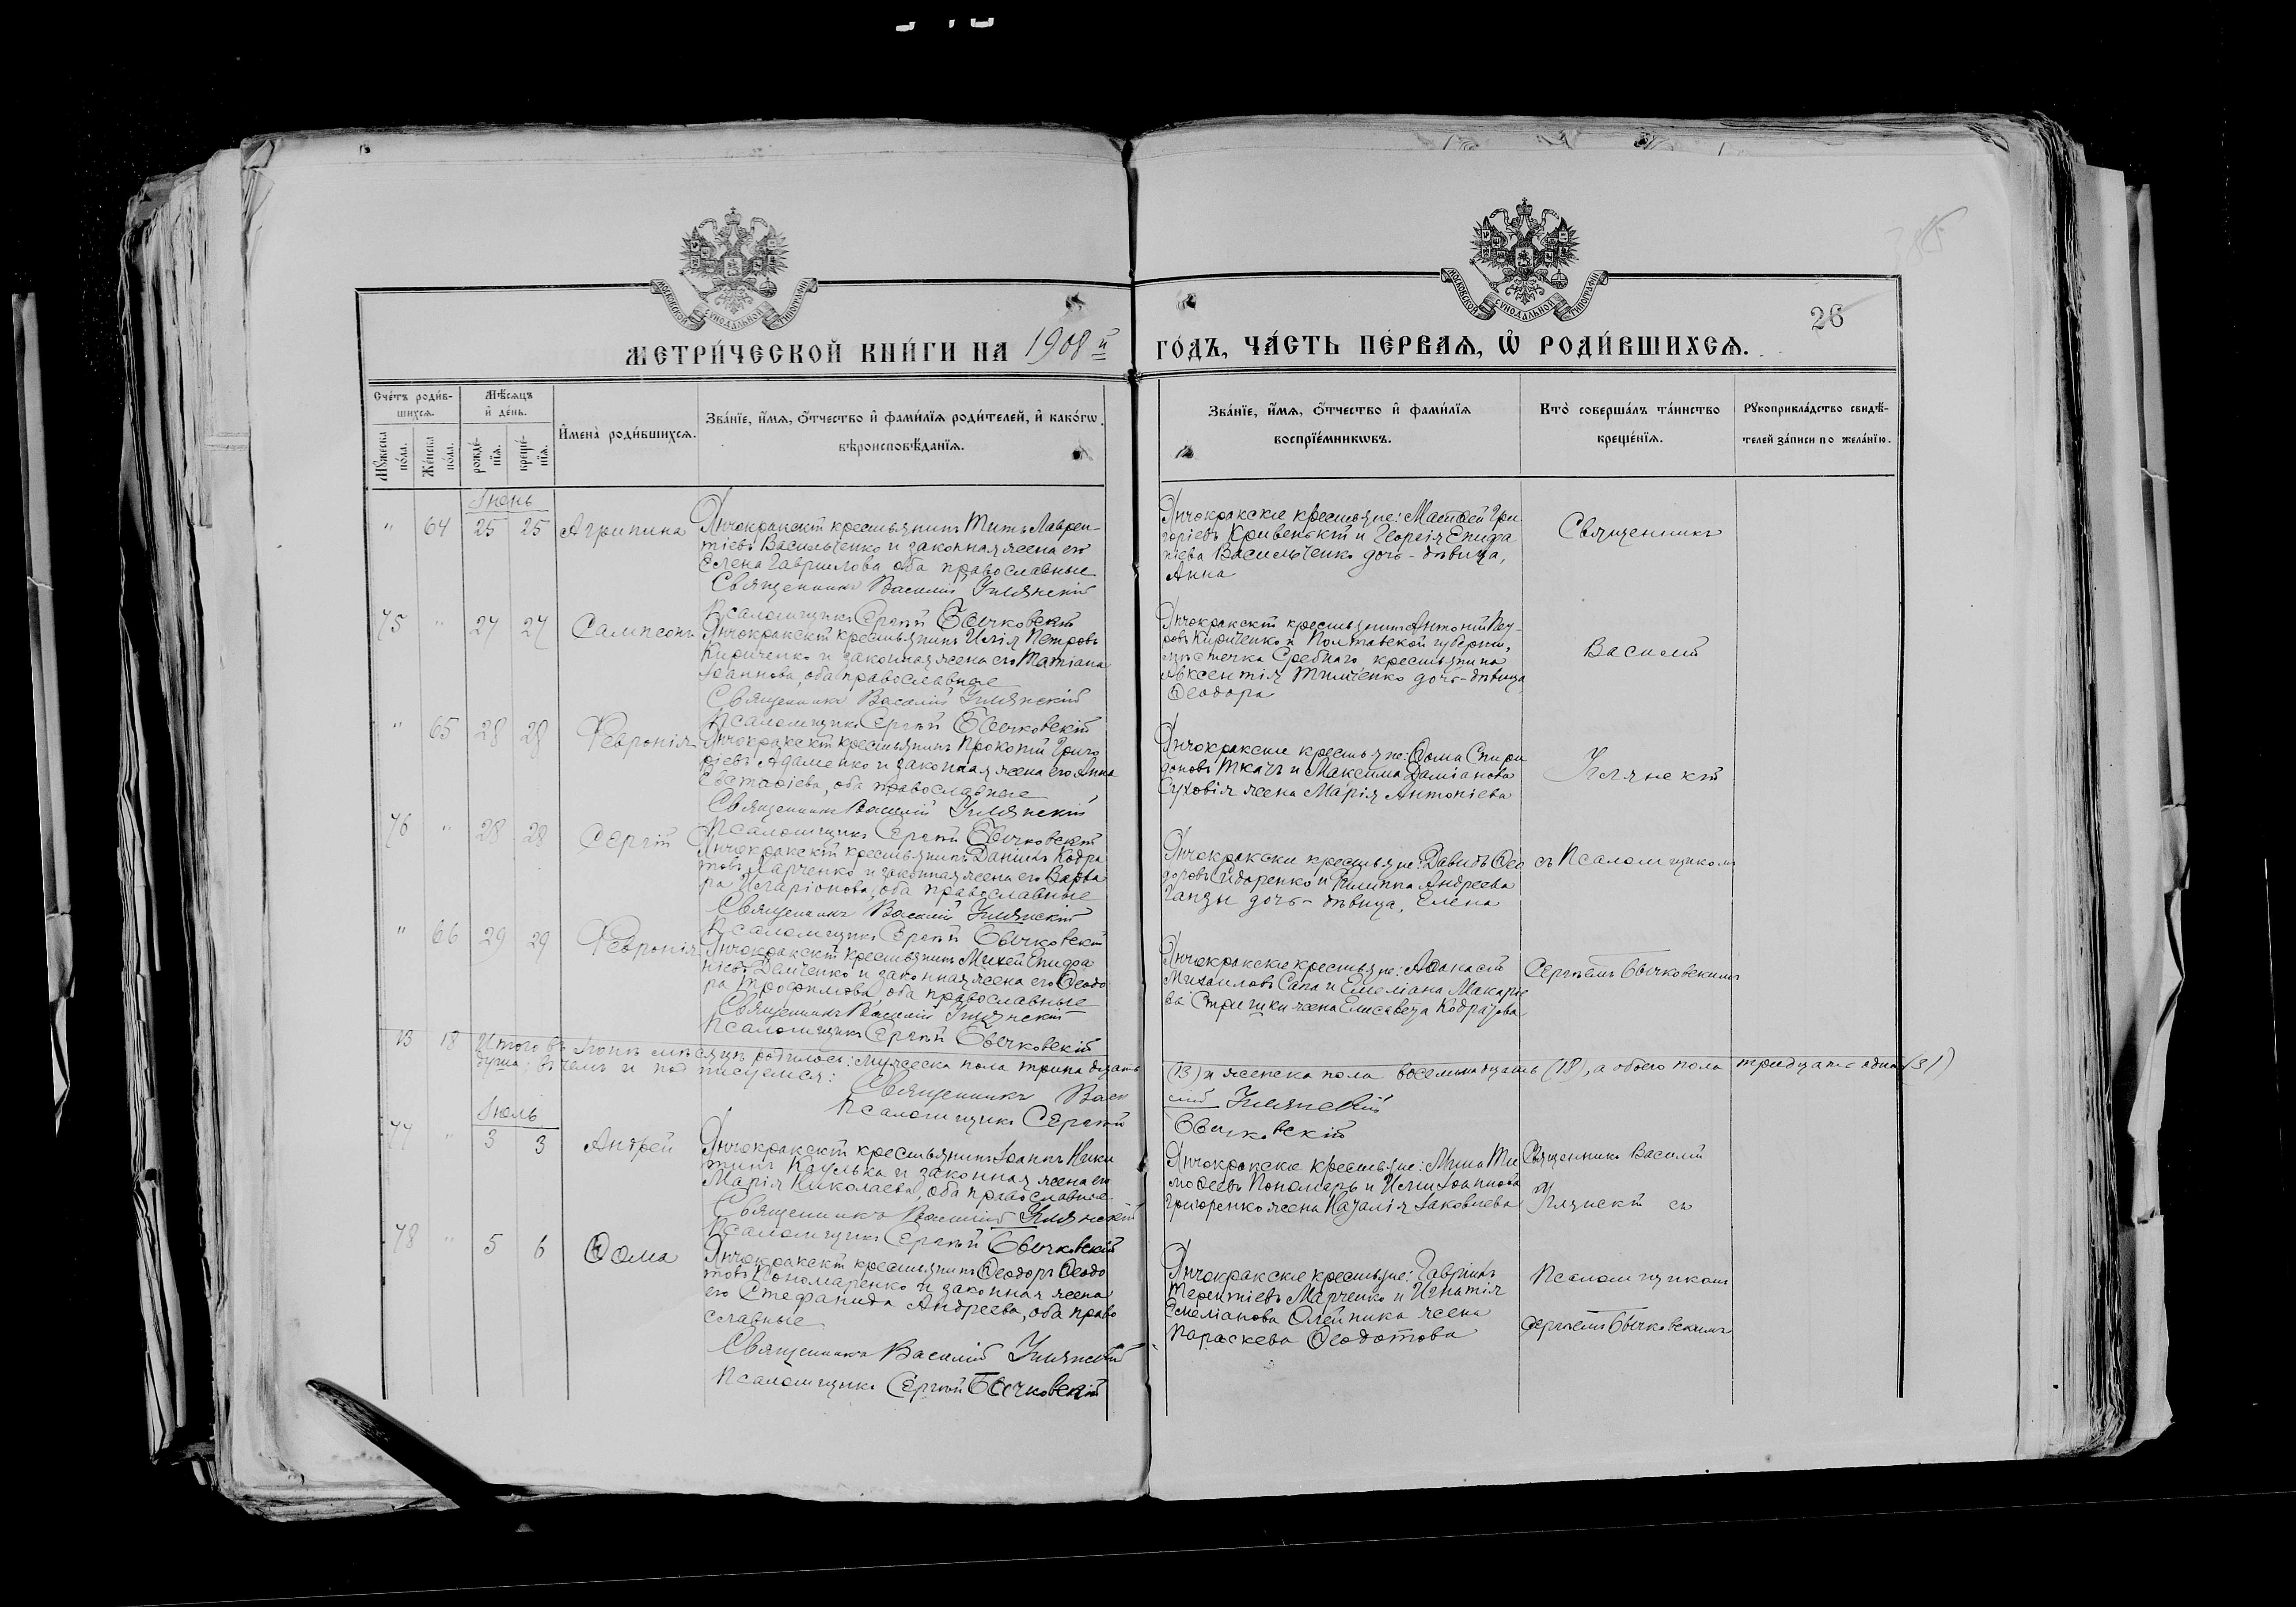 МОСКОВСКОЙ СѴНОДАЛЬНОЙ ТИПОГРАФІИ
МОСКОВСКОЙ СѴНОДАЛЬНОЙ ТИПОГРАФІИ
26
МЕТРИ́ЧЕСКОЙ КНИ́ГИ НА 1908 й ГО́ДЪ, ЧА́СТЬ ПЕ́РВАѦ, Ѡ҆ РОДИ́ВШИХСѦ.
Сче́тъ роди́в-
шихсѧ.
Мꙋжеска по́ла.
Же́нска по́ла.
Мѣ́сѧцъ
и҆ де́нь.
рожде́-
нїѧ.
креще́-
нїѧ.
И҆мена̀ роди́вшихсѧ.
Зва́нїе, и҆́мѧ, ѻ҆́тчество и҆ фами́лїѧ роди́телей, и҆ како́гѡ
вѣроисповѣ́данїѧ.
Зва́нїе, и҆́мѧ, ѻ҆́тчество и҆ фами́лїѧ
воспрїе́мникѡвъ.
Кто̀ соверша́лъ та́инство
креще́нїѧ.
Рꙋкоприкла́дство свидѣ́-
телей за́писи по жела́нїю.
Іюнь
" 64 25 25 Агрипина
Янчокракскій крестьянинъ Титъ Лаврен-
тіевъ Васильченко и законная жена его
Елена Гаврилова оба православные
Священникъ Василій Уклянскій
Псаломщикъ Сергѣй Бычковскій
Янчокракскіе крестьяне: Матѳей Гри
горіевъ Кривенькій и Георгія Епифа
ніева Васильченко дочь-дѣвица,
Анна
Священникъ
75 " 27 27 Сампсонъ
Янчокракскій крестьянинъ Илія Петровъ
Кириченко и законная жена его Татіана
Іоаннова, оба православные
Священникъ Василій Уклянскій
Псаломщикъ Сергѣй Бычковскій
Янчокракскій крестьянинъ Антоній Пет-
ровъ Кириченко и Полтавской губерніи,
мѣстечка Сребнаго, крестьянина
Авксентія Тимченко дочь-дѣвица
Ѳеодора
Василій
" 65 28 28 Февронія
Янчокракскій крестьянинъ Прокопій Григо
ріевъ Адаменко и законная жена его Анна
Евстафіева, оба православные
Священникъ Василій Уклянскій
Псаломщикъ Сергѣй Бычковскій
Янчокракскіе крестьяне: Ѳома Спири
доновъ Ткачъ и Максима Даміанова
Суховія жена Марія Антоніева
76 " 28 28 Сергій
Янчокракскій крестьянинъ Даніилъ Кодра
товъ Марченко и законная жена его Варва
ра Иларіонова, оба православные
Священникъ Василій Уклянскій
Псаломщикъ Сергѣй Бычковскій
Янчокракскіе крестьяне: Давидъ Ѳео
доровъ Сидоренко и Филиппа Андреева
Ганзы дочь-дѣвица, Елена
съ Псаломщикомъ
" 66 29 29 Февронія
Янчокракскій крестьянинъ Михей Епифа
ніевъ Демченко и законная жена его Ѳеодо
ра Трофимова, оба православные
Священникъ Василій Уклянскій
Псаломщикъ Сергѣй Бычковскій
Янчокракскіе крестьяне: Аѳанасій
Михаиловъ Сапа и Емеліана Макаріе
ва Стрижки жена Елисавета Кодратова
Сергѣемъ Бычковскимъ
13 18 Итого въ Іюнѣ мѣсяцѣ родилось: мужеска пола тринадцать
(13) и женска пола восемьнадцать (18), а обоего пола тридцать одна (31)
душа; въ чемъ и подписуемся:
Священникъ Васи
лій Уклянскій
Псаломщикъ Сергѣй
Бычковскій
Іюль
77 " 3 3 Андрей
Янчокракскій крестьянинъ Іоаннъ Ники
тинъ Каулька и законная жена его
Марія Николаева, оба православные
Священникъ Василій Уклянскій
Псаломщикъ Сергѣй Бычковскій
Янчокракскіе крестьяне: Мина Ти
моѳеевъ Пономарь и Иліи Іоаннова
Григоренко жена Наталія Іаковлева
Священникъ Василій
Уклянскій съ
78 " 5 6 Ѳома
Янчокракскій крестьянинъ Ѳеодоръ Ѳеодо
товъ Пономаренко и законная жена
его Стефанида Андреева, оба право
славные
Священникъ Василій Уклянскій
Псаломщикъ Сергѣй Бычковскій
Янчокракскіе крестьяне: Гавріилъ
Терентіевъ Марченко и Игнатія
Емеліанова Олейника жена
Параскева Ѳеодотова
Псаломщикомъ
Сергѣемъ Бычковскимъ